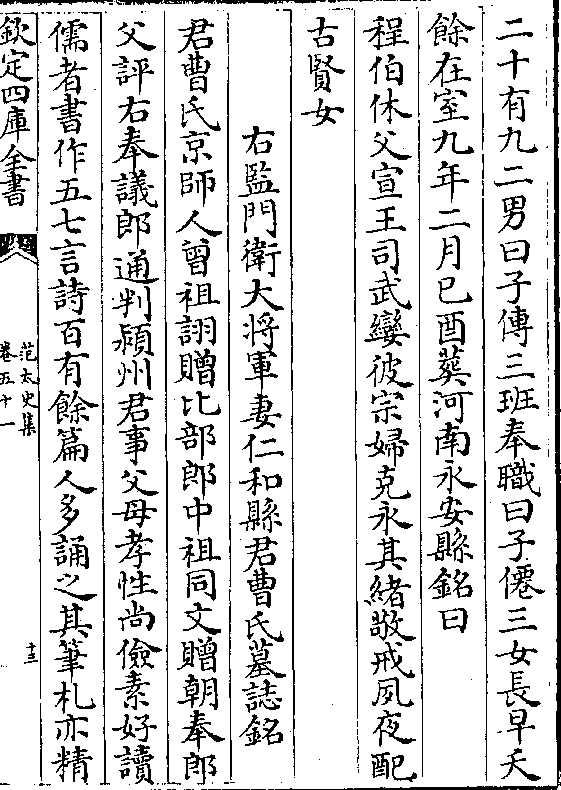 二十有九二男曰子傳三班奉職曰子僊三女長早夭
餘在室九年二月己酉葬河南永安縣銘曰
程伯休父宣王司武孌彼宗婦克永其緒敬戒夙夜配
古賢女
右監門衛大將軍妻仁和縣君曹氏墓誌銘
君曹氏京師人曾祖詡贈比部郎中祖同文贈朝奉郎
父評右奉議郎通判潁州君事父母孝性尚儉素好讀
儒者書作五七言詩百有餘篇人多誦之其筆札亦精
欽定四庫全書
范太史集
卷五十一
十三